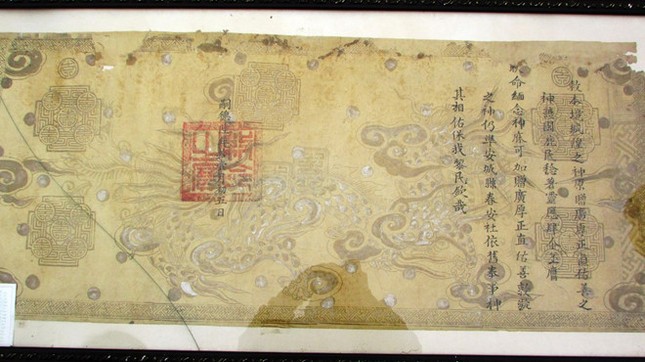 敕本境城隍之神原贈廣厚正直佑善之
神護國庇民稔著靈應肆今丕膺
耿命緬念神庥可加贈廣厚正直佑善敦凝
之神仍準安城縣春安社依舊奉事神
其相佑保我黎民欽哉
嗣德年月五日
敕命之寶